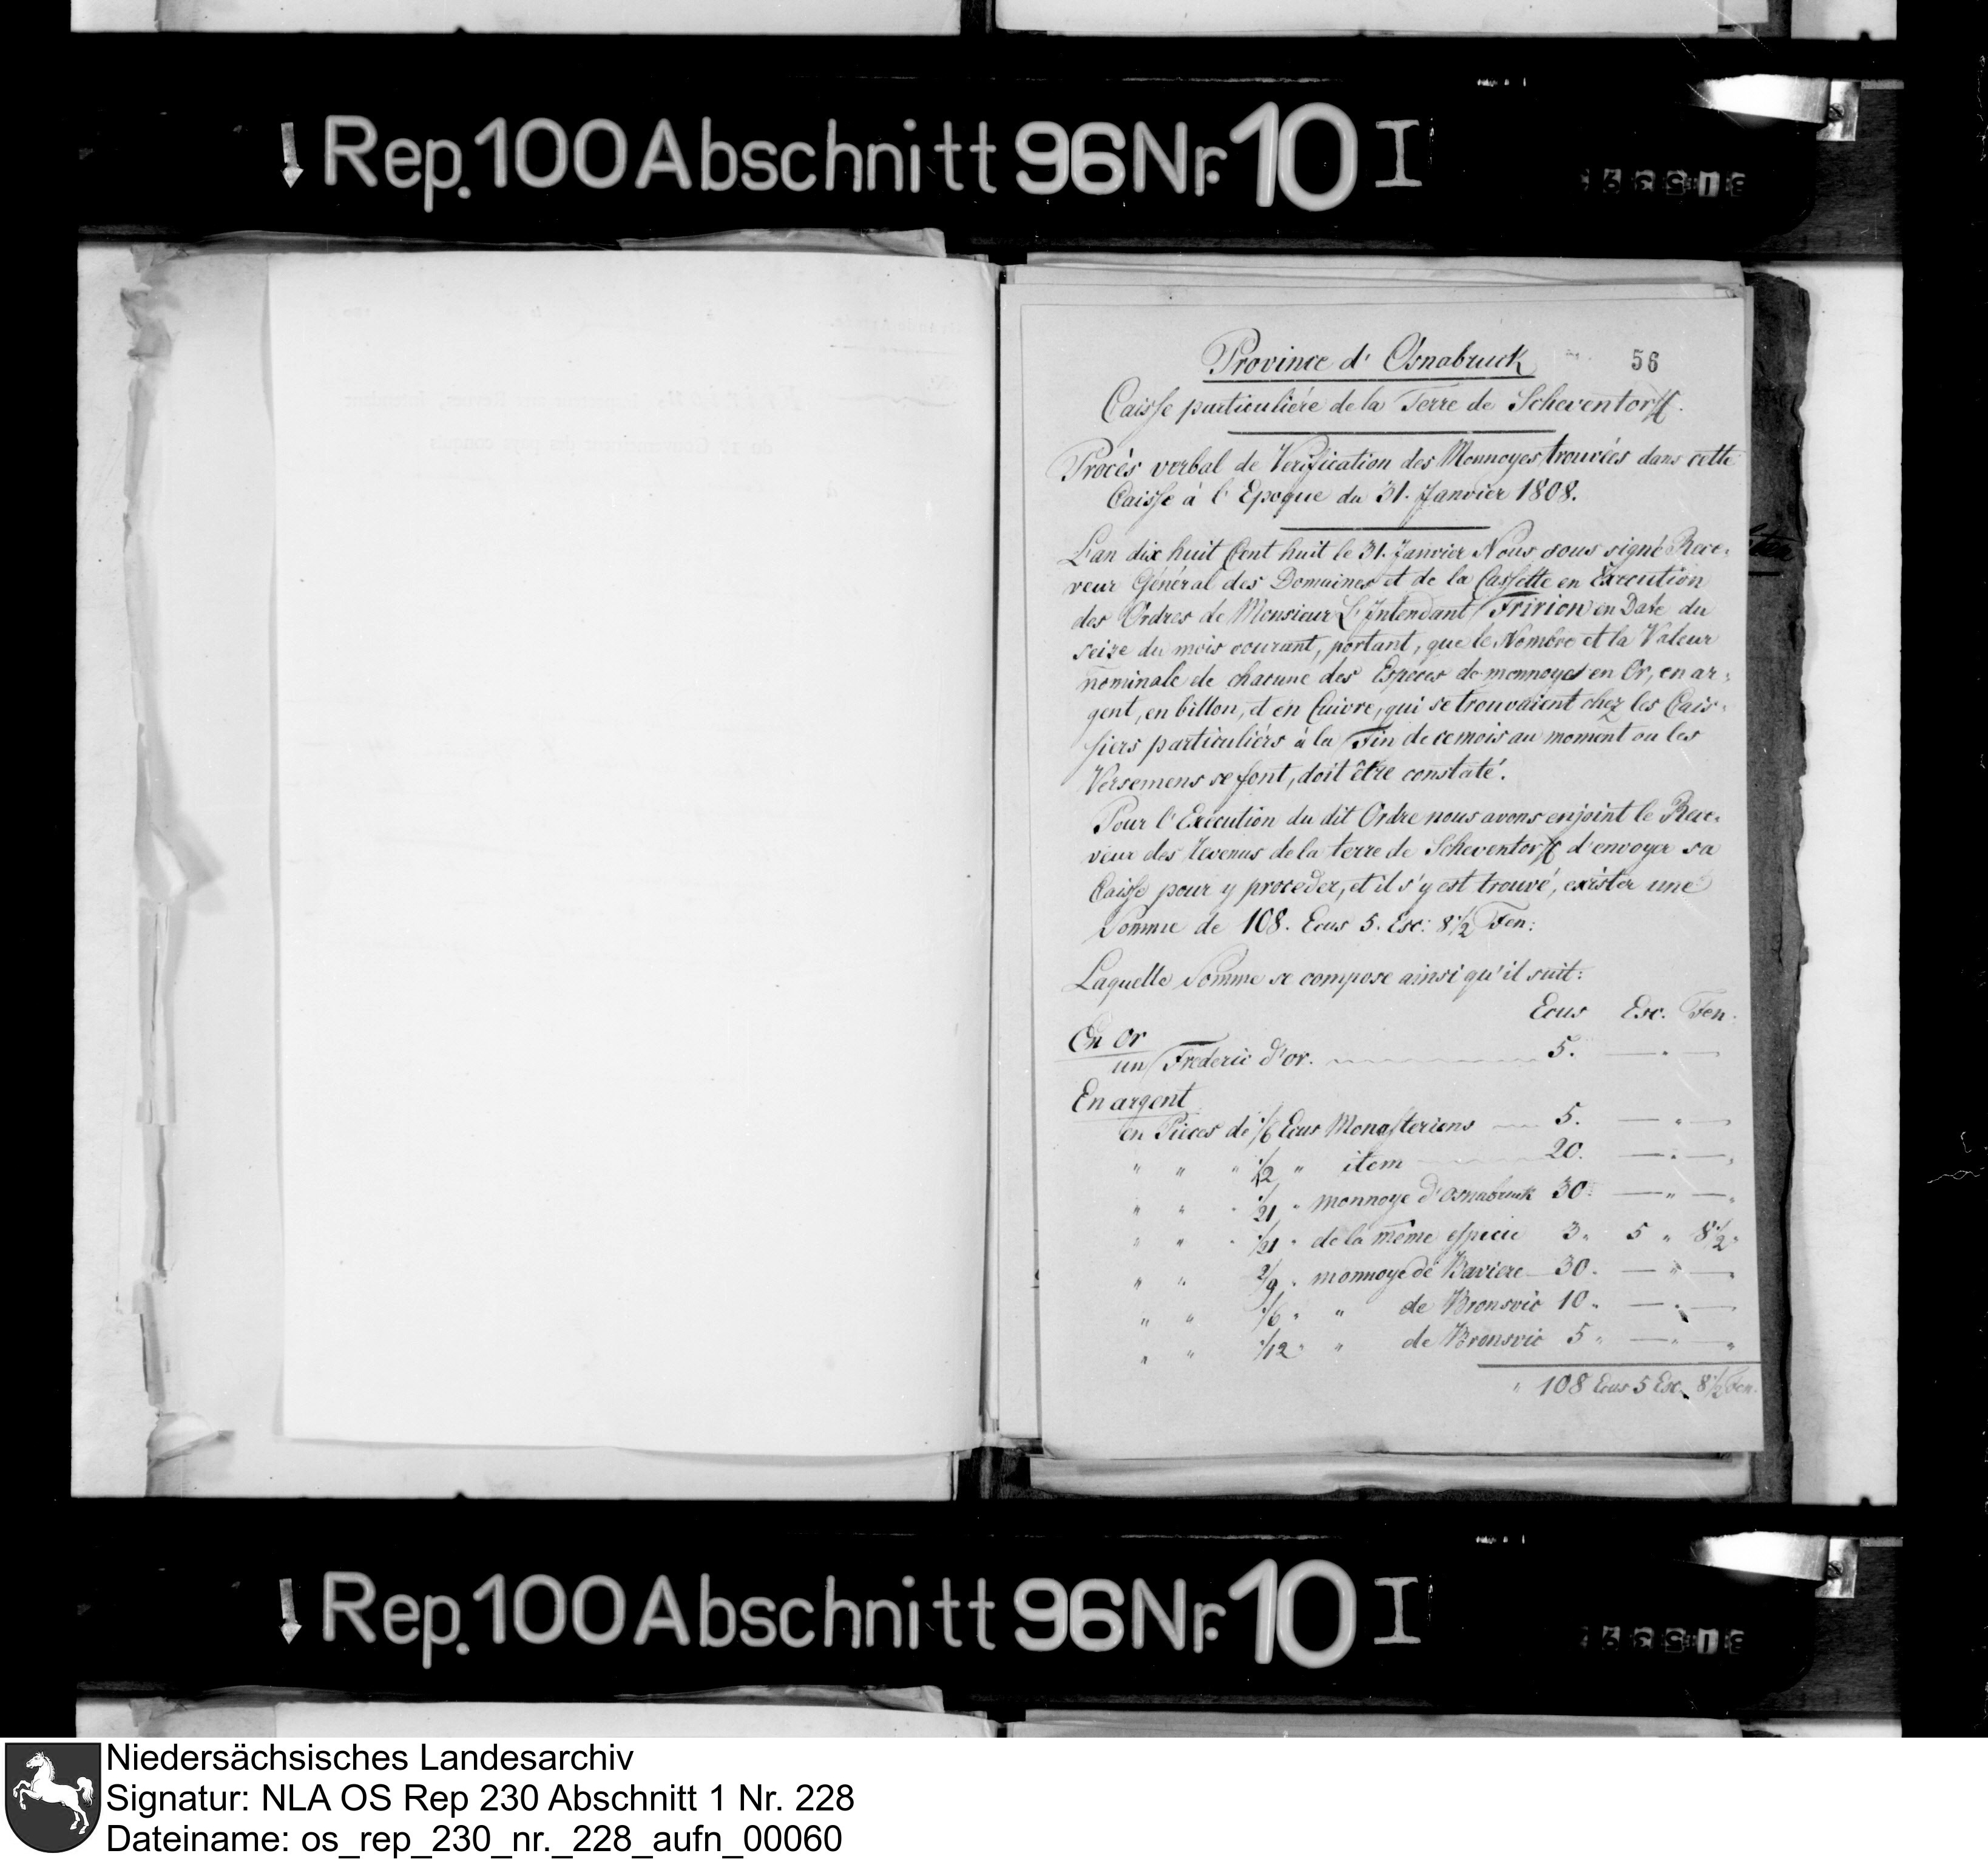 Rep. 100 Abschnitt 96 Nr. 10 I
Province d' Osnabruck
56
Caisse particuliére de la Terre de Scheventorff.
Procès verbal de Verification des Monnoyes trouvées dans cette
Caisse à l'Epoque du 31. Janvier 1808.
L'an dix huit Cent huit le 31. Janvier Nous sous signé Rece-
veur Général des Domaines et de la Cassette en Execution
des Ordres de Monsieur L'Intendant Fririon en Date du
seize du mois courant, portant, que le Nombre et la Valeur
nominale de chacune des Especes de monnoyes en Or, en ar-
gent, en billon, et en Cuivre, qui se trouvaient chez les Cais-
siers particuliérs à la Fin de ce mois au moment ou les
Versemens se font, doit être constaté.
Pour l'Execution du dit Ordre nous avons enjoint le Rece-
veur des Revenus de la terre de Scheventorff d'envoyer sa
Caisse pour y proceder, et il s'y est trouvé, exister une
Somme de 108. Ecus 5. Esc: 8 1/2 Fen:
Laquelle Somme se compose ainsi qu'il suit:
Ecus Esc. Fen.
En Or
un Frederic d'or. 5. — . —
En argent
en Pieces de 1/6 Ecus Monasteriens 5. — " —
" " " 1/12 " item 20. — " —
" " " 1/21 " monnoye d'Osnabruck 30. — " —
" " " 1/21 " de la même espece 3 " 5 " 8 1/2 "
" " 2/9 " monnoye de Baviere 30. — " —
" " 1/6 " " de Bronsvic 10 " — " —
" " 1/12 " " de Bronsvic 5 " — " "
" 108 Ecus 5 Esc. 8 1/2 Fen.
Rep. 100 Abschnitt 96 Nr. 10 I
Niedersächsisches Landesarchiv
Signatur: NLA OS Rep 230 Abschnitt 1 Nr. 228
Dateiname: os_rep_230_nr._228_aufn_00060